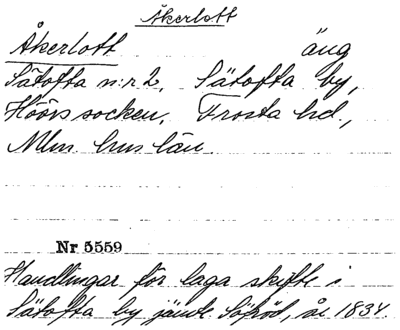 Åkerlott
Åkerlott äng
Sätofta n:r 2, Sätofta by,
Höörs socken, Frosta hd.,
Mlm. hus län.
Nr 5559
Handlingar för laga skifte i
Sätofta by jämte Säröd, år 1834.